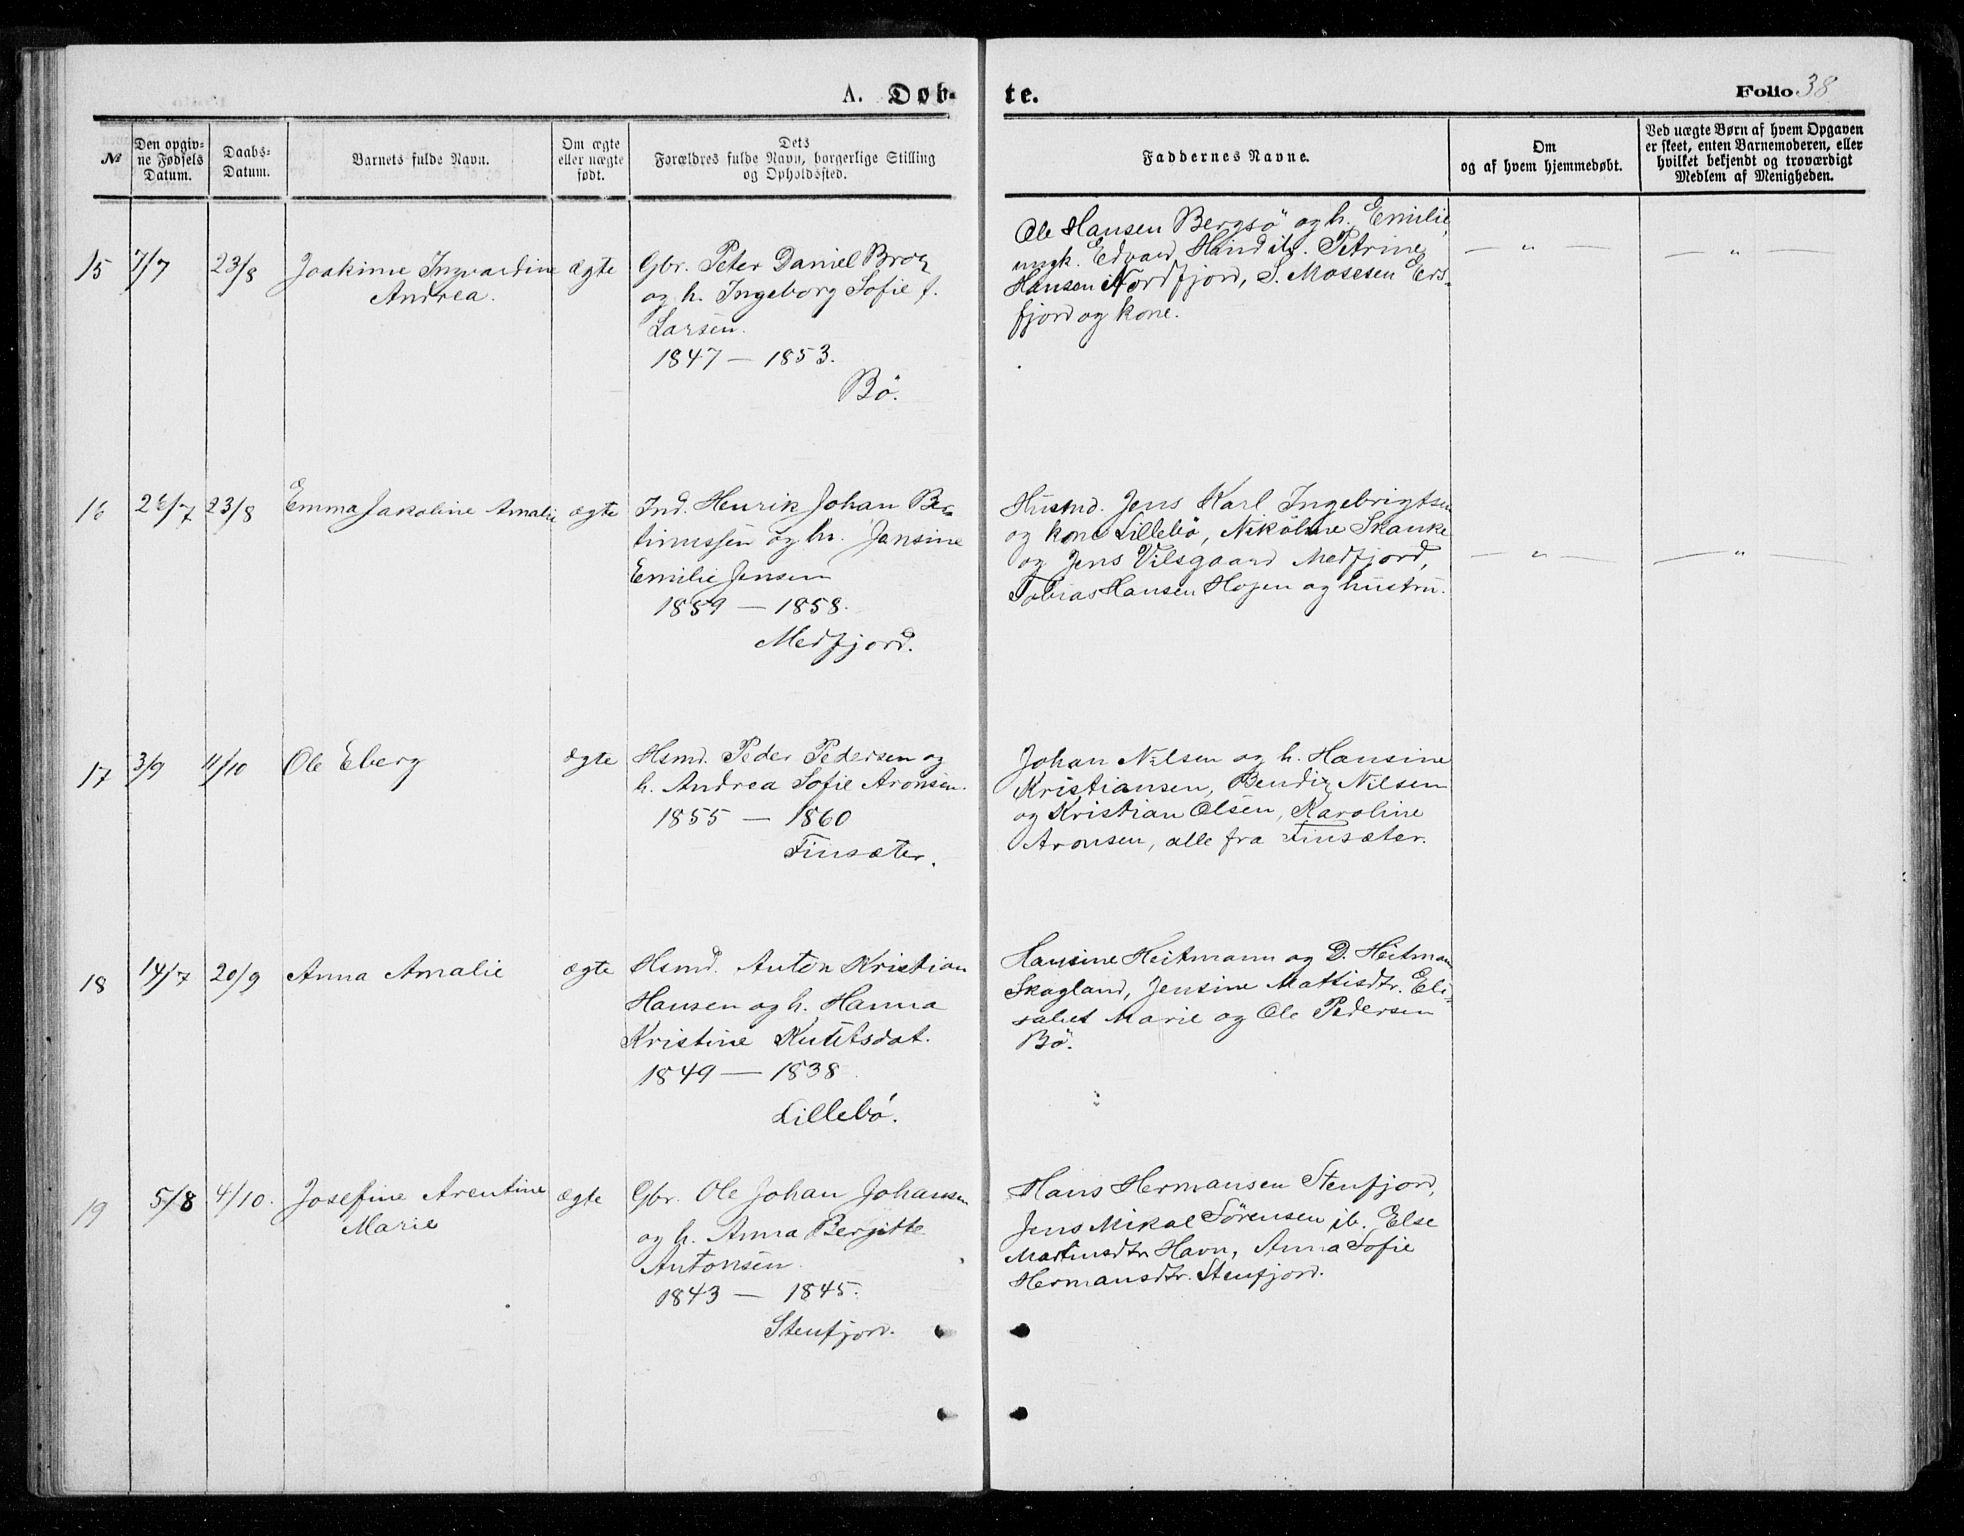 A. Døb-
te.
Folio 38
№
Den opgiv-
ne Fødsels
Datum.
Daabs-
Datum.
Barnets fulde Navn.
Om ægte
eller uægte
født.
Dets
Forældres fulde Navn, borgerlige Stilling
og Opholdssted.
Faddernes Navne.
Om
og af hvem hjemmedøbt.
Ved uægte Børn af hvem Opgaven
er skeet, enten Barnemoderen, eller
hvilket bekjendt og troværdigt
Medlem af Menigheden.
15
7/7
23/8
Joakime Ingvardine
Andrea.
ægte
Gbr. Peter Daniel
og h. Ingeborg Sofie f.
Larsen.
1847 — 1853.
Bö.
Ole Hansen Bergsö og h. Emilie,
ungk. Edvard ib. Petrine
Hansen Nordfjord, S. Mosesen Ers-
fjord og kone.
— " —
— " —
16
26/7
23/8
Emma Jakoline Amalie
ægte
Ind. Henrik Johan Ber-
tinussen og h. Jensine
Emilie Jensen
1859 — 1858.
Medfjord.
Husmd. Jens Karl Ingebrigtsen
og kone Lillebö, Nikoline Skanke
og Jens Vilsgaard Medfjord,
Tobias Hansen Hofen og hustru.
— " —
— " —
17
3/9
11/10
Ole Eberg
ægte
Hsmd. Peder Pedersen og
h. Andrea Sofie Aronsen.
1855 — 1860
Finsæter.
Johan Nilsen og h. Hansine
Kristiansen, Bendix Nilsen
og Kristian Olsen, Karoline
Aronsen, alle fra Finsæter.
18
14/7
20/9
Anna Amalie
ægte
Hsmd. Anton Kristian
Hansen og h. Hanna
Kristine
1849 — 1838
Lillebö.
Hansine Heitmann og D. Heitman
Skagland, Jensine Mattisdtr. Eli-
sabet Marie og Ole Pedersen
Bö.
19
5/8
4/10.
Josefine Arentine
Marie
ægte
Gbr. Ole Johan Johansen
og h. Anna Bergitte
Antonsen.
1843 — 1845.
Stenfjord.
Hans Hermansen Stenfjord,
Jens Mikal Sörensen ib. Else
Martinsdtr Havn, Anna Sofie
Hermansdtr. Stenfjord.